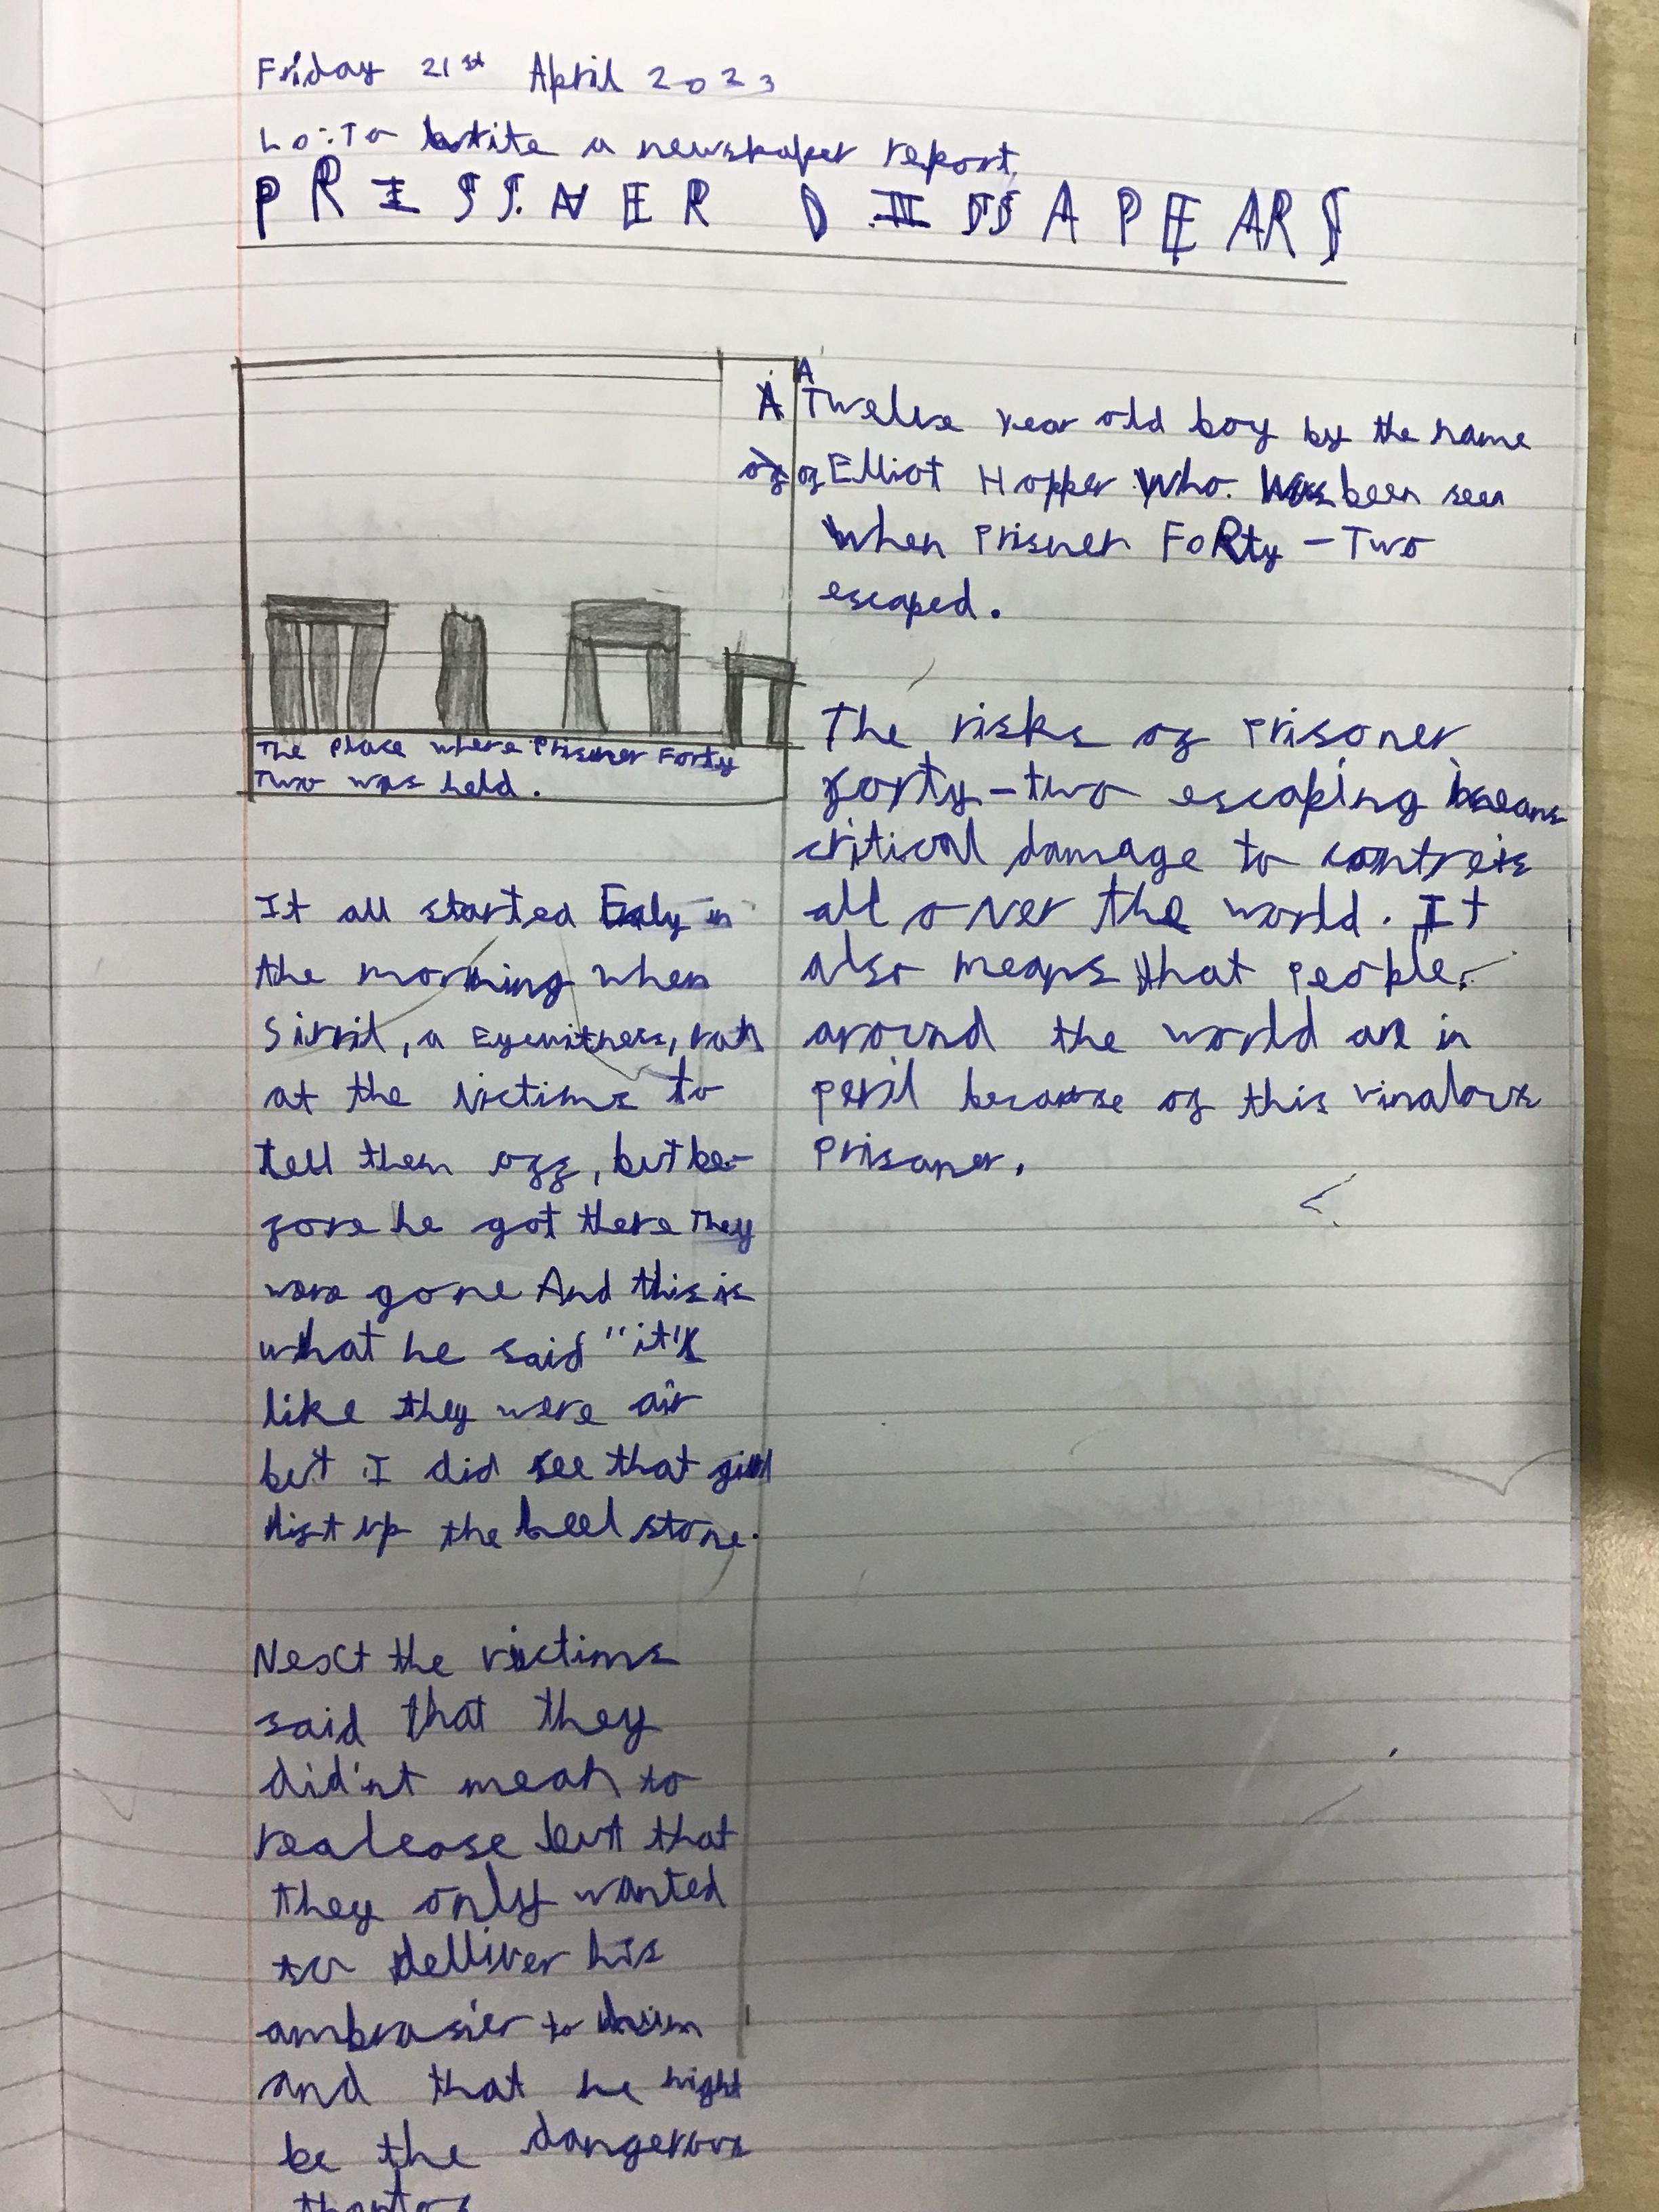 Friday 21st April 2023
Lo: To write a newspaper report.
PRISSNER DISSAPEARS
A
Twelve year old boy by the name
of Elliot Hopper who. has been seen
when Prisner FoRty - Two
escaped.
The place where Prisoner Forty
Two was held.
The risks of Prisoner
forty-two escaping means
critical damage to contreis
all over the world. It
also means that people.
around the world are in
peril because of this vinalous
Prisoner.
It all started Ealy in
the morning when
Sirril, a Eyewitness, rats
at the victims to
tell them off, but be-
fore he got there They
were gone And this is
what he said "it's
like they were air
but I did see that girl
lift up the heel stone.
Nesct the victims
said that they
did'nt mean to
realease but that
they only wanted
to delliver his
ambrasier to him
and that he might
be the dangerous